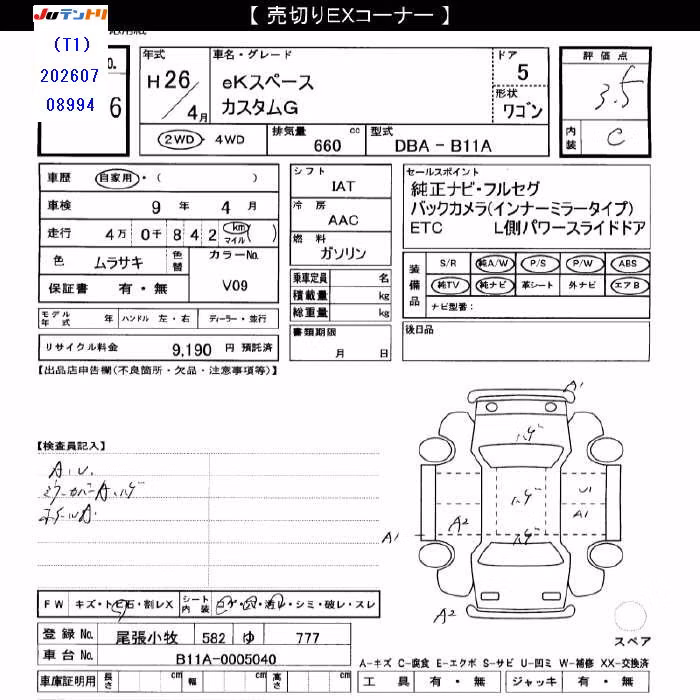 【 売切りEXコーナー 】
JUテントリ
(T1)
202607
08994
6
年式
H26/4月
車名・グレード
eKスペース
カスタムG
ドア
5
形状
ワゴン
評価点
3.5
内装
C
2WD・4WD
排気量
660 cc
型式
DBA - B11A
車歴 自家用・( )
車検 9年 4月
走行 4万 0千 8 4 2 km マイル ( )
色 ムラサキ 色替
カラーNo.
V09
保証書 有・無
シフト
IAT
冷房
AAC
燃料
ガソリン
乗車定員 名
積載量 kg
総重量 kg
セールスポイント
純正ナビ・フルセグ
バックカメラ(インナーミラータイプ)
ETC L側パワースライドドア
装備品
S/R 純A/W P/S P/W ABS
純TV 純ナビ 革シート 外ナビ エアB
ナビ型番:
モデル年式 年 ハンドル 左・右 ディーラー・並行
書類期限
月 日
後日品
リサイクル料金 9,190 円 預託済
【出品店申告欄(不良箇所・欠品・注意事項等)】
【検査員記入】
A.U.
ミラーカバーA.ハゲ
ホイールA.
A1
ハゲ
ハゲ
U1
A1
A2
A1
ハゲ
A2
スペア
FW キズ・トビ石・割レX
シート内装 コゲ・穴・汚レ・シミ・破レ・スレ
登録No. 尾張小牧 582 ゆ 777
車台No. B11A-0005040
車庫証明用 長さ cm 幅 cm 高さ cm
A-キズ C-腐食 E-エクボ S-サビ U-凹ミ W-補修 XX-交換済
工具 有・無 ジャッキ 有・無